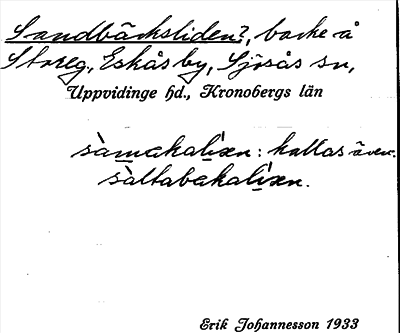 Sandbäcksliden?, backe å
Storeg., Eskås by, Sjösås sn,
Uppvidinge hd., Kronobergs län
: kallas även.
Erik Johannesson 1933